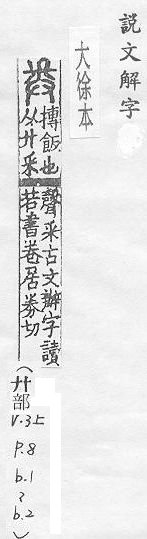 説文解字
大徐本
𢍏
摶飯也
从廾釆
聲釆古文辦字讀
若書卷居券切
(廾部
v.3上
p.8
b.1
~
b.2
)